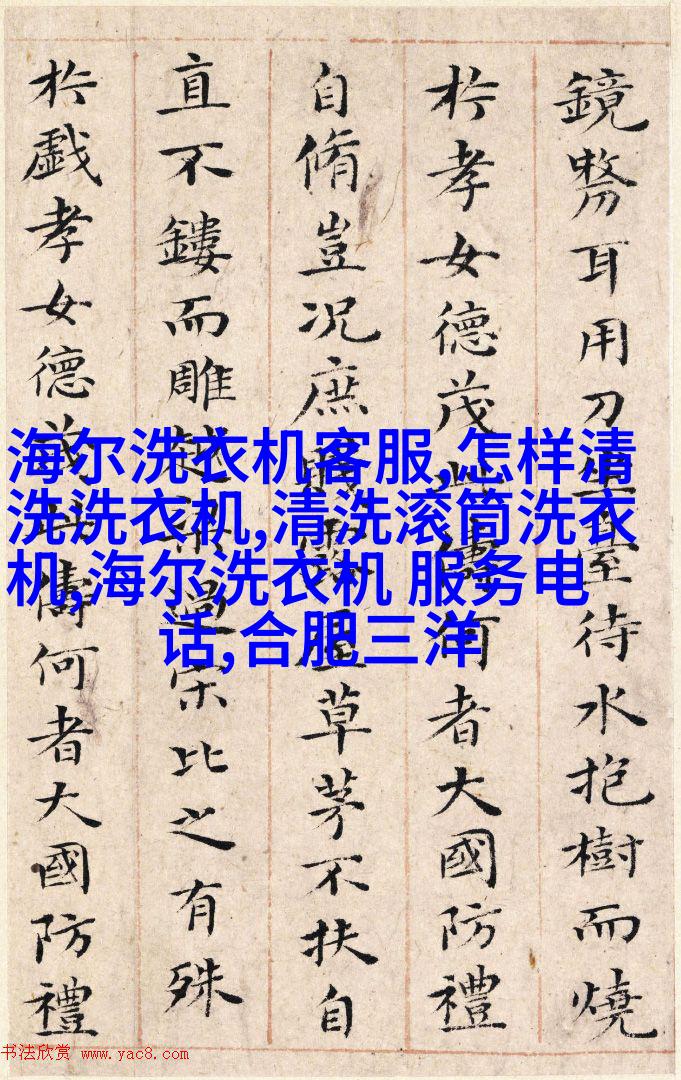 鏡剺耳用刀坐臺待水抱樹而燒
於孝女德茂此儔何者大國防禮
自脩豈況庶賤露屋草茅不扶自
直不鏤而雕越梁過宋比之有殊
於戲孝女德茂此儔何者大國防禮
海尔洗衣机客服,怎样清
洗洗衣机,清洗滚筒洗衣
机,海尔洗衣机 服务电
话,合肥三洋
书法欣赏 www.yac8.com